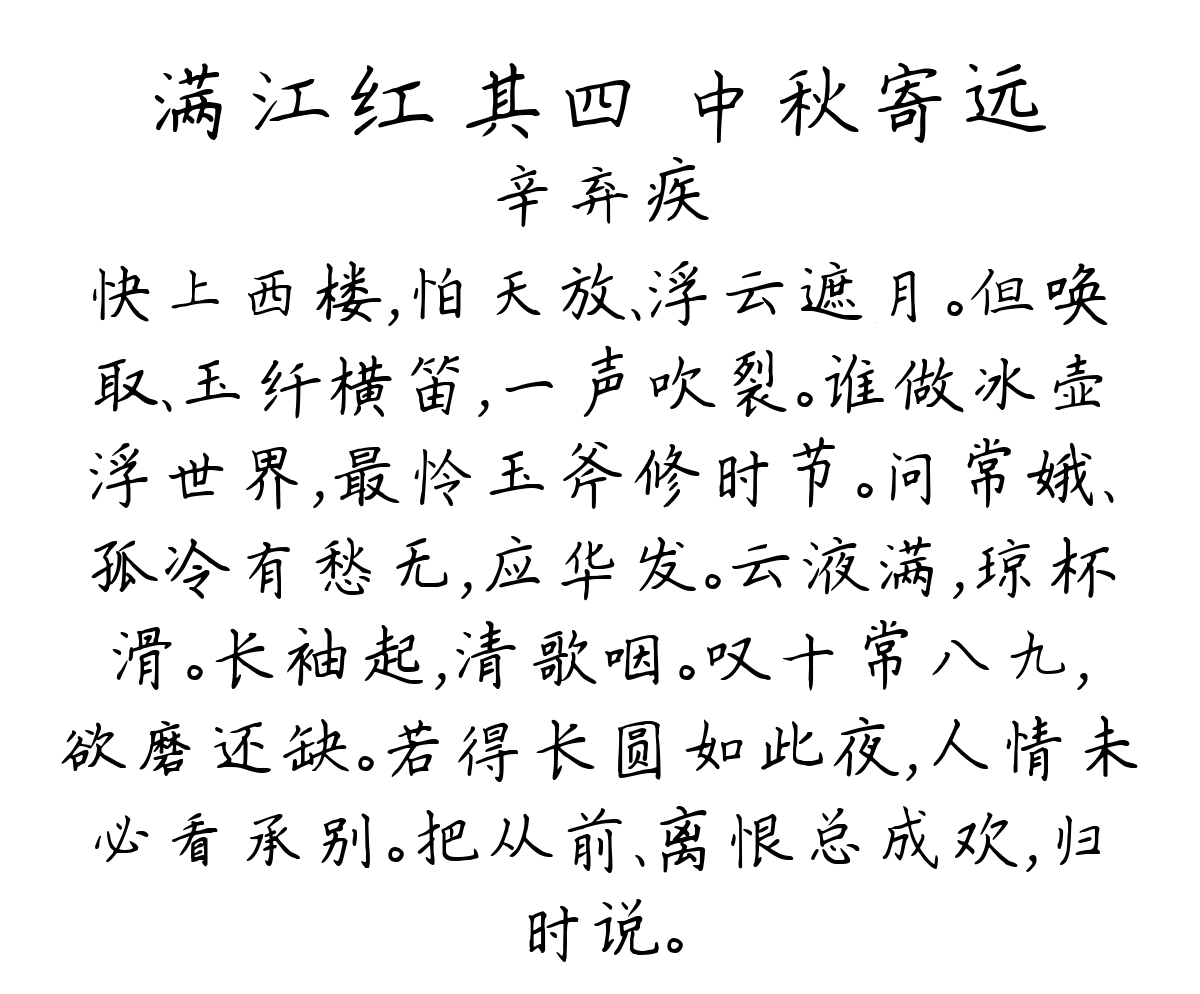 满江红 其四 中秋寄远
辛弃疾
快上西楼,怕天放、浮云遮月。但唤
取、玉纤横笛,一声吹裂。谁做冰壶
浮世界,最怜玉斧修时节。问常娥、
孤冷有愁无,应华发。云液满,琼杯
滑。长袖起,清歌咽。叹十常八九,
欲磨还缺。若得长圆如此夜,人情未
必看承别。把从前、离恨总成欢,归
时说。